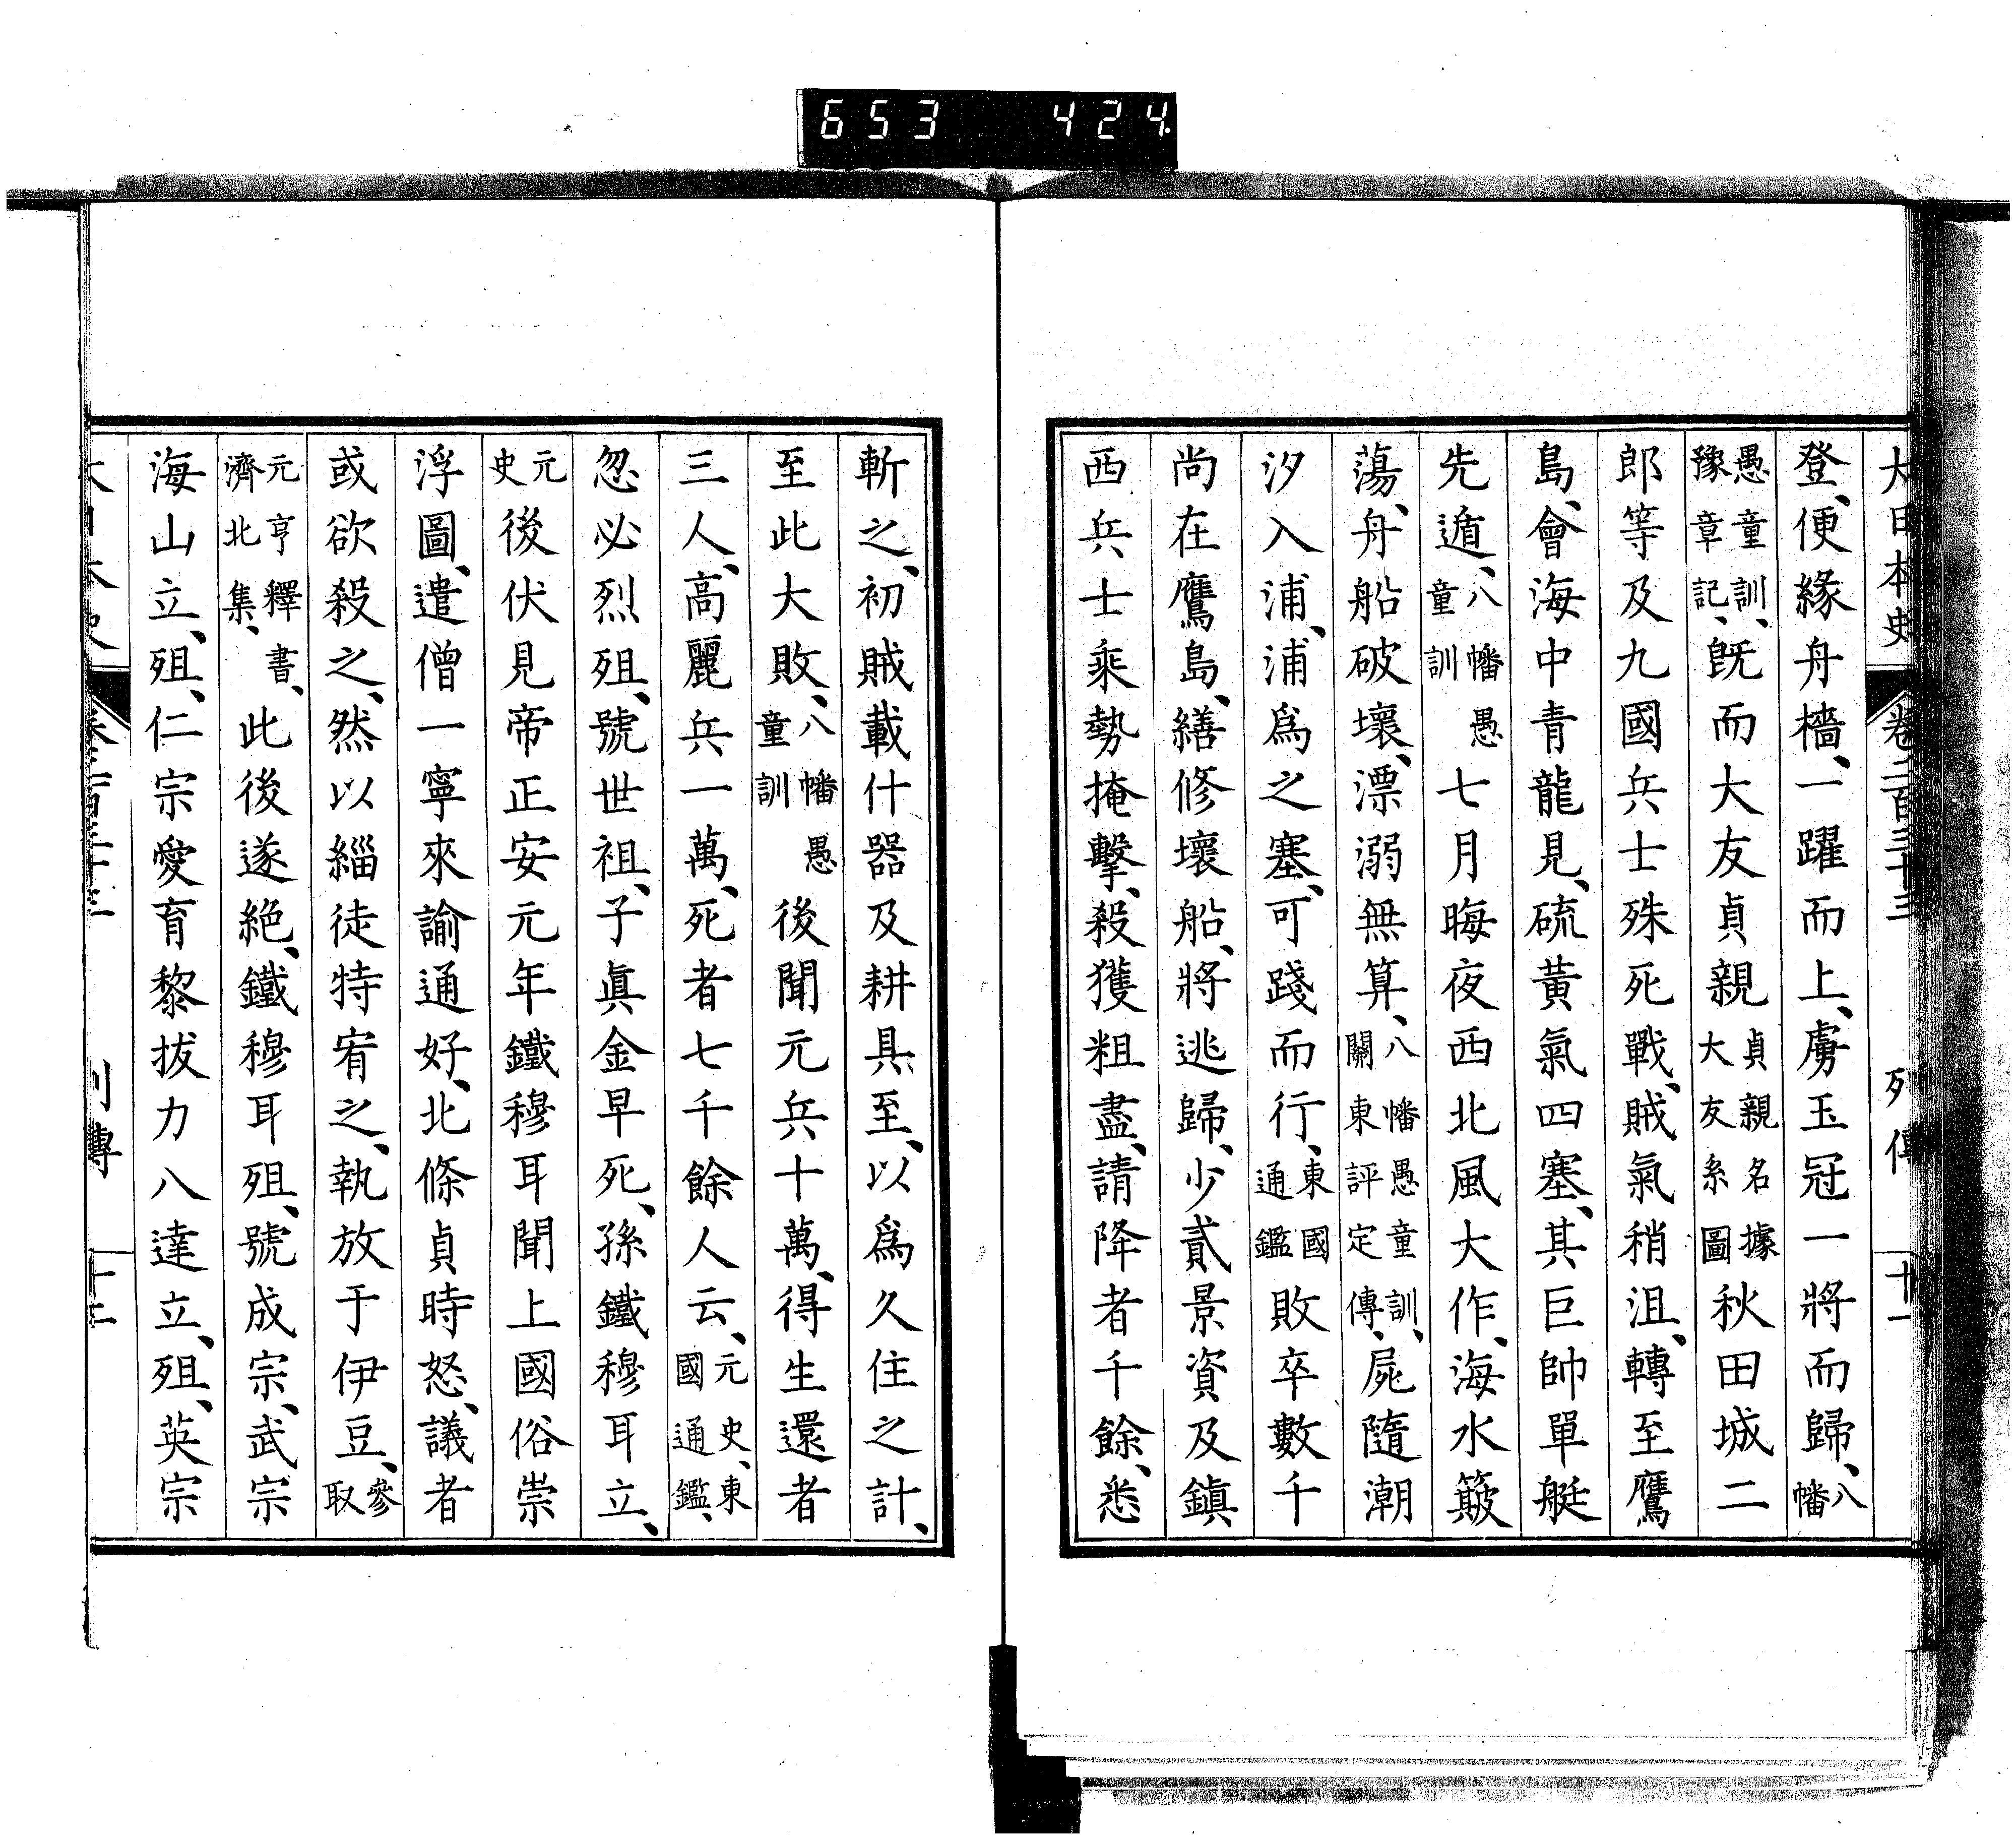 653 424
大日本史 卷二百三十三 列傳 十一
登、便緣舟檣、一躍而上、虜玉冠一將而歸、八幡
愚童訓、豫章記、既而大友貞親貞親名據大友系圖秋田城二
郎等及九國兵士殊死戰、賊氣稍沮、轉至鷹
島、會海中青龍見、硫黃氣四塞、其巨帥單艇
先遁、八幡愚童訓七月晦夜西北風大作、海水簸
蕩、舟船破壞、漂溺無算、八幡愚童訓、關東評定傳、屍隨潮
汐入浦、浦爲之塞、可踐而行、東國通鑑敗卒數千
尚在鷹島、繕修壞船、將逃歸、少貳景資及鎭
西兵士乘勢掩擊、殺獲粗盡、請降者千餘、悉
斬之、初賊載什器及耕具至、以爲久住之計、
至此大敗、八幡愚童訓後聞元兵十萬、得生還者
三人、高麗兵一萬、死者七千餘人云、元史、東國通鑑、
忽必烈殂、號世祖、子眞金早死、孫鐵穆耳立、
元史後伏見帝正安元年鐵穆耳聞上國俗崇
浮圖、遣僧一寧來諭通好、北條貞時怒、議者
或欲殺之、然以緇徒特宥之、執放于伊豆、參取
元亨釋書、濟北集、此後遂絕、鐵穆耳殂、號成宗、武宗
海山立、殂、仁宗愛育黎拔力八達立、殂、英宗
列傳